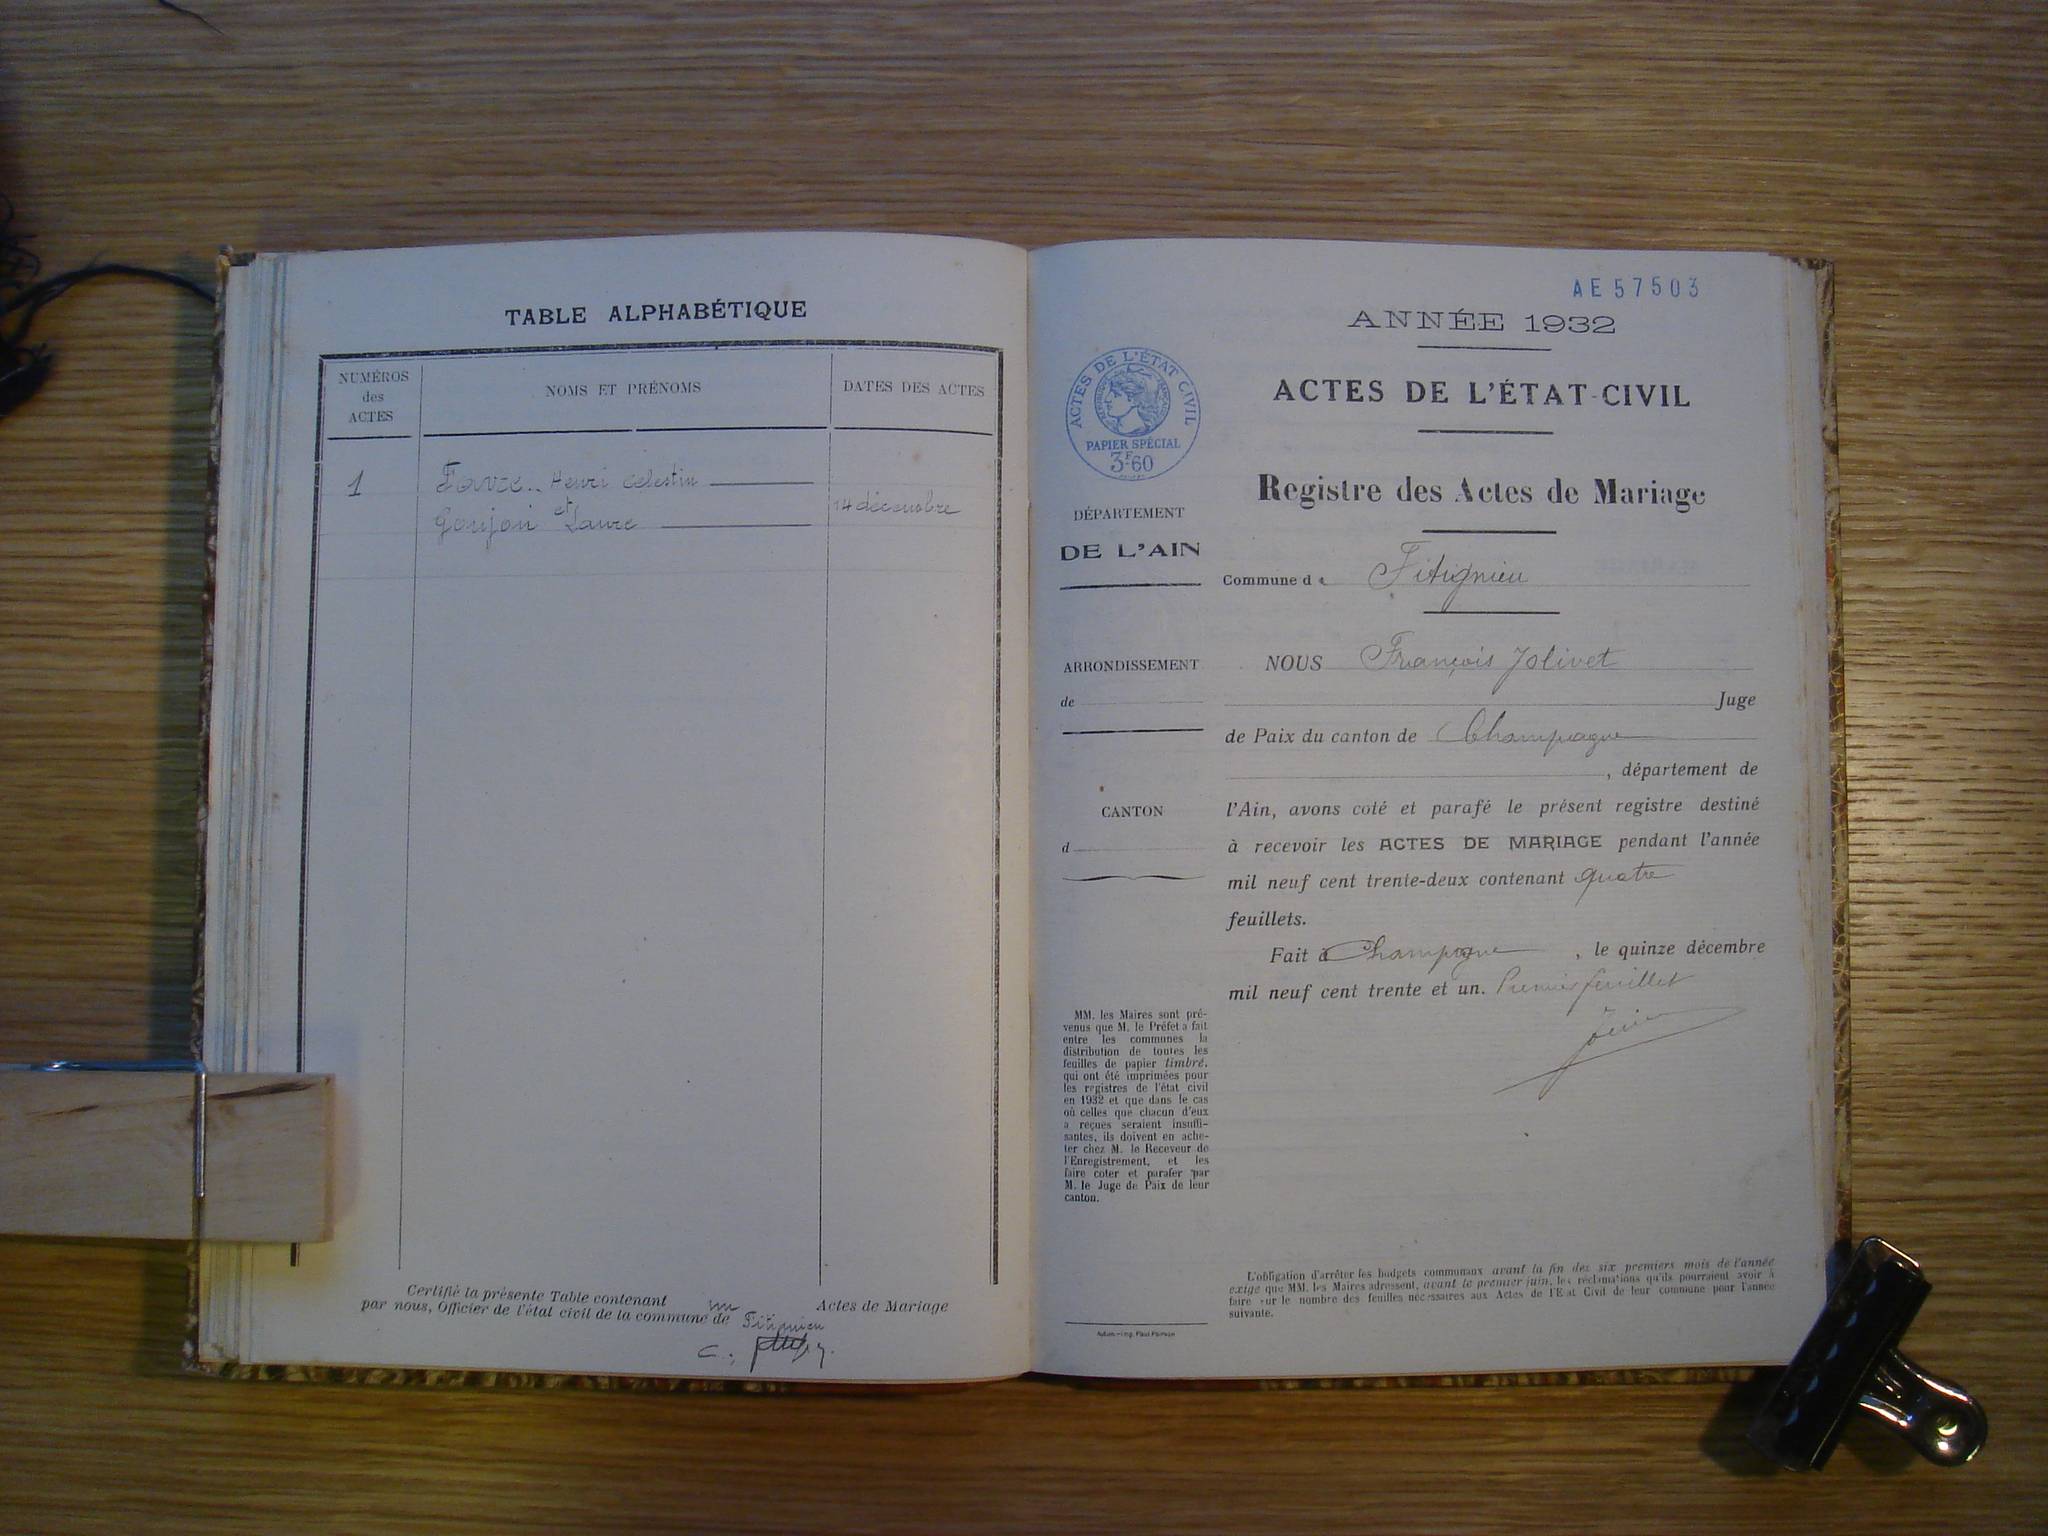 TABLE ALPHABÉTIQUE
NUMÉROS
des
ACTES
NOMS ET PRÉNOMS
DATES DES ACTES
1
Favre Henri Celestin
et
Goujon Laure
14 décembre
Certifié la présente Table contenant un Actes de Mariage
par nous, Officier de l'état civil de la commune de Fitignieu
AE57503
ANNÉE 1932
ACTES DE L'ÉTAT-CIVIL
Registre des Actes de Mariage
ACTES DE L'ÉTAT CIVIL
PAPIER SPÉCIAL
3F60
DÉPARTEMENT
DE L'AIN
ARRONDISSEMENT
de
CANTON
d
Commune de Fitignieu
NOUS François Jolivet
Juge
de Paix du canton de Champagne
, département de
l'Ain, avons coté et parafé le présent registre destiné
à recevoir les ACTES DE MARIAGE pendant l'année
mil neuf cent trente-deux contenant quatre
feuillets.
Fait à Champagne , le quinze décembre
mil neuf cent trente et un. Premier feuillet
MM. les Maires sont pré-
venus que M. le Préfet a fait
entre les communes la
distribution de toutes les
feuilles de papier timbré,
qui ont été imprimées pour
les registres de l'état civil
en 1932 et que dans le cas
où celles que chacun d'eux
a reçues seraient insuffi-
santes, ils doivent en ache-
ter chez M. le Receveur de
l'Enregistrement, et les
faire coter et parafer par
M. le Juge de Paix de leur
canton.
L'obligation d'arrêter les budgets communaux avant la fin des six premiers mois de l'année
exige que MM. les Maires adressent, avant le premier juin, les réclamations qu'ils pourraient avoir à
faire sur le nombre des feuilles nécessaires aux Actes de l'Etat Civil de leur commune pour l'année
suivante.